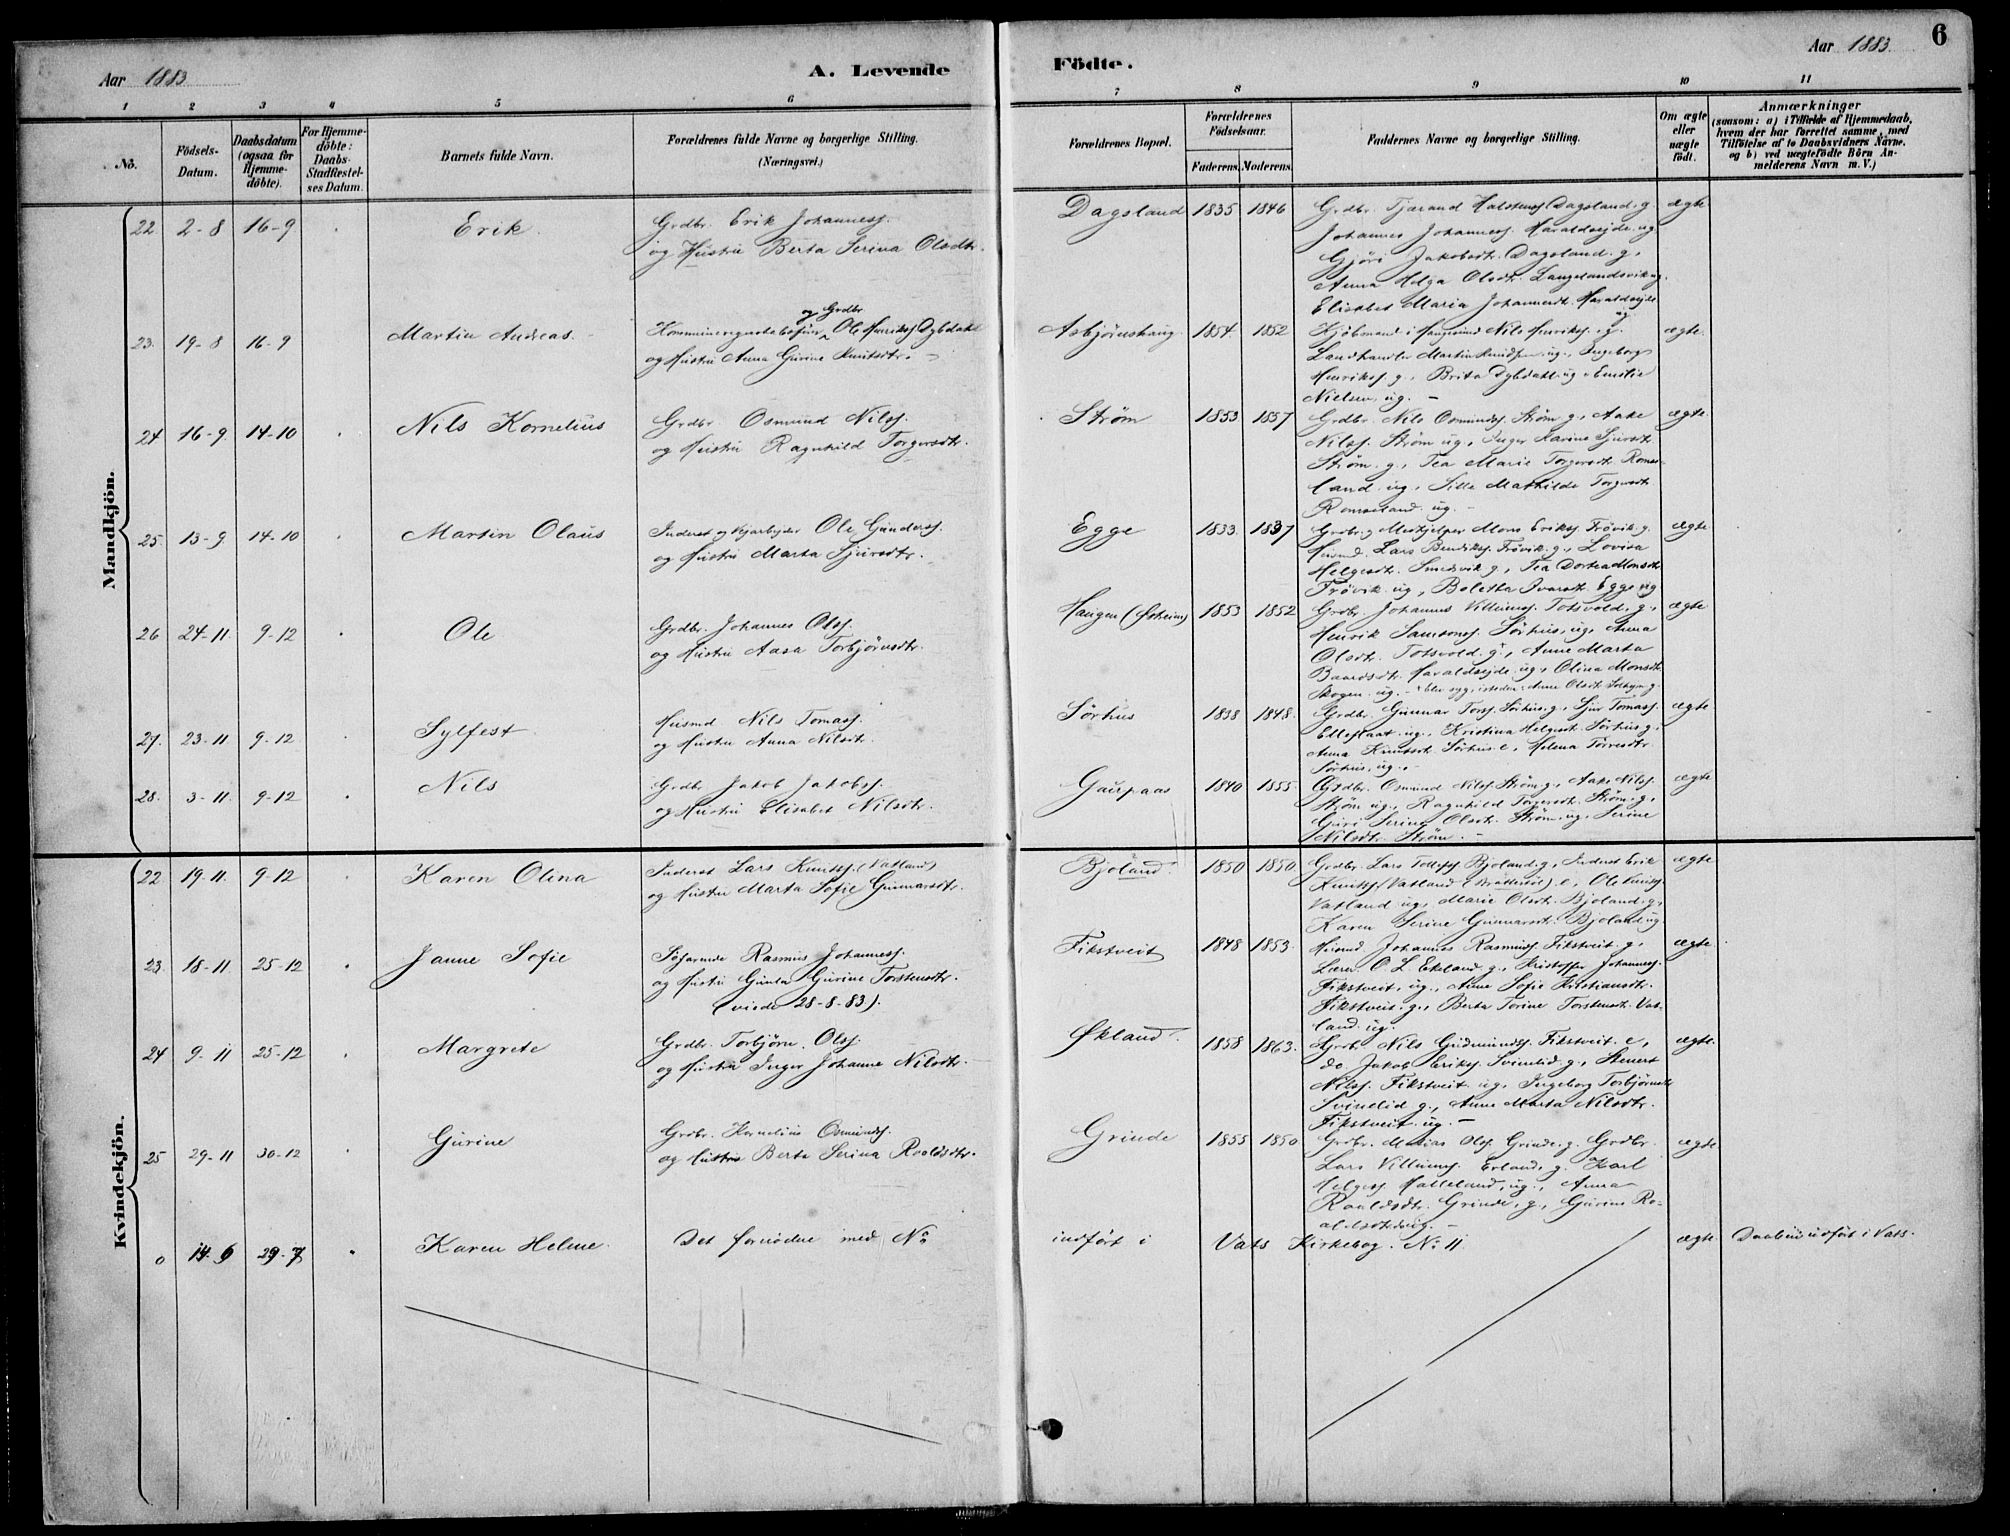 Aar 1883
A. Levende
Födte.
Aar 1883.
6
1 2 3 4 5 6
7 8 9 10 11
Nö.
Födsels-
Datum.
Daabsdatum
(ogsaa for
Hjemme-
döbte).
For Hjemme-
döbte:
Daabs-
Stadfæstel-
ses Datum.
Barnets fulde Navn.
Forældrenes fulde Navne og borgerlige Stilling.
(Næringsvei.)
Forældrenes Bopæl.
Forældrenes
Födselsaar.
Faderens. Moderens.
Faddernes Navne og borgerlige Stilling.
Om ægte
eller
uægte
födt.
Anmærkninger
(saasom: a) i Tilfælde af Hjemmedaab,
hvem der har forrettet samme, med
Tilföielse af to Daabsvidners Navne.
og b) ved uægtefödte Börn An-
melderens Navn m. V.)
Mandkjön.
22. 2-8 16-9 Erik.
Grdbr. Erik Johanness.
og Hustru Berta Serina Olsdtr.
Dagsland 1835 1846
Grdbr. Tjærand Halstenss Dagsland. g.
Johannes Johanness. Haraldseide ug
Gjöri Jakobsdtr. Dagsland. g,
Anna Helga Olsdtr. Langelandsvik ug.
Elisabet Maria Johannesdtr. Haraldseide
ug
ægte
23. 19-8 16-9 Martin Andreas.
og Grdbr
Kommuneregnskabsförer Ole Henrikss Dybdahl
og Hustru Anna Gurine Knutsdtr.
Asbjörnshaug. 1854. 1852
Kjöbmand i Haugesund Nils Henrikss. g.
Landhandler Martin Knudsen ug., Ingeborg
Henrikss. g., Brita Dybdahl ug. Emilie
Nielsen, ug.
ægte.
24 16-9 14-10 Nils Kornelius
Grdbr. Osmund Nilss.
og Hustru Ragnhild Torgersdtr.
Ström 1853 1857
Grdbr. Nils Osmundss. Ström g., Aake
Nilss. Ström ug., Inger Karine Sjursdtr.
Ström. g., Tea Marie Torgersdtr. Romse-
land ug, Sille Mathilde Torgersdtr.
Romseland. ug.
ægte
25 13-9 14-10 Martin Olaus
Inderst og Vejarbejder Ole Gunderss.
og Hustru Marta Sjursdtr.
Egge 1833. 1837
Grdbr. g Medhjelper Mons Erikss. Frövik. g.
Husmd. Lars Bendikss. Frövik. g., Lovisa
Helgesdtr. Smedsvik g, Tea Dortea Monsdtr
Frövik. ug, Boletha Ivarsdtr. Egge ug
ægte
26 24-11. 9-12 Ole
Grdbr. Johannes Olss.
og Hustru Aasa Torbjörnsdtr.
Haugen (Öiheim) 1853 1852
Grdbr. Johannes Villumss. Totsvold, g.,
Henrik Samsonss. Sörhus, ug, Anna
Olsdtr. Totsvold. g., Anne Marta
Baardsdtr. Haraldseide ug., Olina Monsdtr
Skogen. ug.
ægte
27. 23-11 9-12 Sylfest.
Husmd Nils Tomass.
og Hustru Anna Nilsdtr.
Sörhus 1838 1848.
Grdbr. Gunnar Torss. Sörhus. g., Sjur Tomass.
ug., Kristina Helgesdtr. Sörhus g,
Anna Knutsdtr Sörhus. e, Helena Torresdtr.
Sörhus, ug.
ægte
28. 3-11. 9-12 Nils
Grdbr Jakob Jakobss.
og Hustru Elisabet Nilsdtr.
Gaupaas 1840 1855
Grdbr. Osmund Nilss. Ström g., Aake Nilss.
Ström ug., Ragnhild Torgersdtr. Ström. g.,
Guri Serina Olsdtr. Ström. ug, Serine
Nilsdtr. Ström.
ægte
Kvindekjön.
22. 19-11. 9-12 Karen Olina
Inderst Lars Knutss. (Vatland)
og Hustru Marta Sofie Gunnarsdtr.
Bjoland. 1850 1850
Grdbr. Lars Tollefss Bjoland. g., Inderst Erik
Knutss. (Vatland e, Ole Knutss.
Vatland ug, Marie Olsdtr. Bjoland. g.,
Karen Serine Gunnarsdtr. Bjoland ug
ægte
23. 18-11 25-12 Janne Sofie
Söfarende Rasmus Johanness.
og Hustru Gunla Gurine Torstensdtr.
(viede 28-8-83).
Fikstveit 1848 1853.
Husmd. Johannes Rasmuss. Fikstveit. g.,
Lærer O. L. Ekeland g., Kristoffer Johanness.
Fikstveit, ug., Anne Sofie Kristiansdtr.
Fikstveit. g., Berta Torine Torstensdtr. Vat-
land. ug.
ægte
24 9-11 25-12 Margrete
Grdbr. Torbjörn. Olss.
og Hustru Inger Johanne Nilsdtr.
Økland. 1858 1863.
Grdbr. Nils Gudmundss. Fikstveit. e,
do Jakob Erikss. Svinelid. g., Stenert
Nilss. Fikstveit ug., Ingeborg Torbjörnsdtr
Svinelid g., Anna Marta Nilsdtr.
Fikstveit. ug.
ægte.
25 29-11 30-12 Gurine
Grdbr. Kornelius Osmundss.
og Hustru Berta Serina Roaldsdtr.
Grinde 1855 1850.
Grdbr. Matias Olss. Grinde. g. Grdbr.
Lars Villumss. Erland, g. Karl
Helgess. Halleland, ug., Anna
Roaldsdtr. Grinde, g., Gurine Ro-
aldsdtr. ug.
ægte
0 14-6 29-7 Karen Helene.
Det fornödne med No
indfört i Vats Kirkebog. No 11.
ægte
Daaben udfört i Vats.